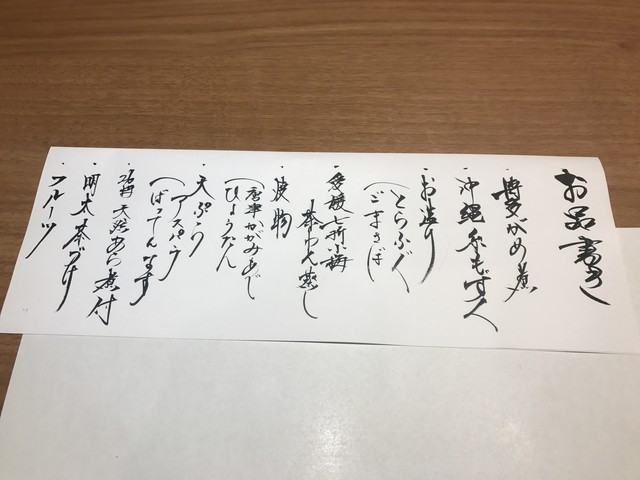 お品書き
・博多がめ煮
・沖縄糸もずく
・お造り
(とらふぐ
ごまさば
・愛媛七折小梅
茶わん蒸し
・焼物
(唐津かがみあじ
ひょうたん
・天ぷら
(アスパラ
ばってんなす
天然あら煮付
・明太茶づけ
・フルーツ